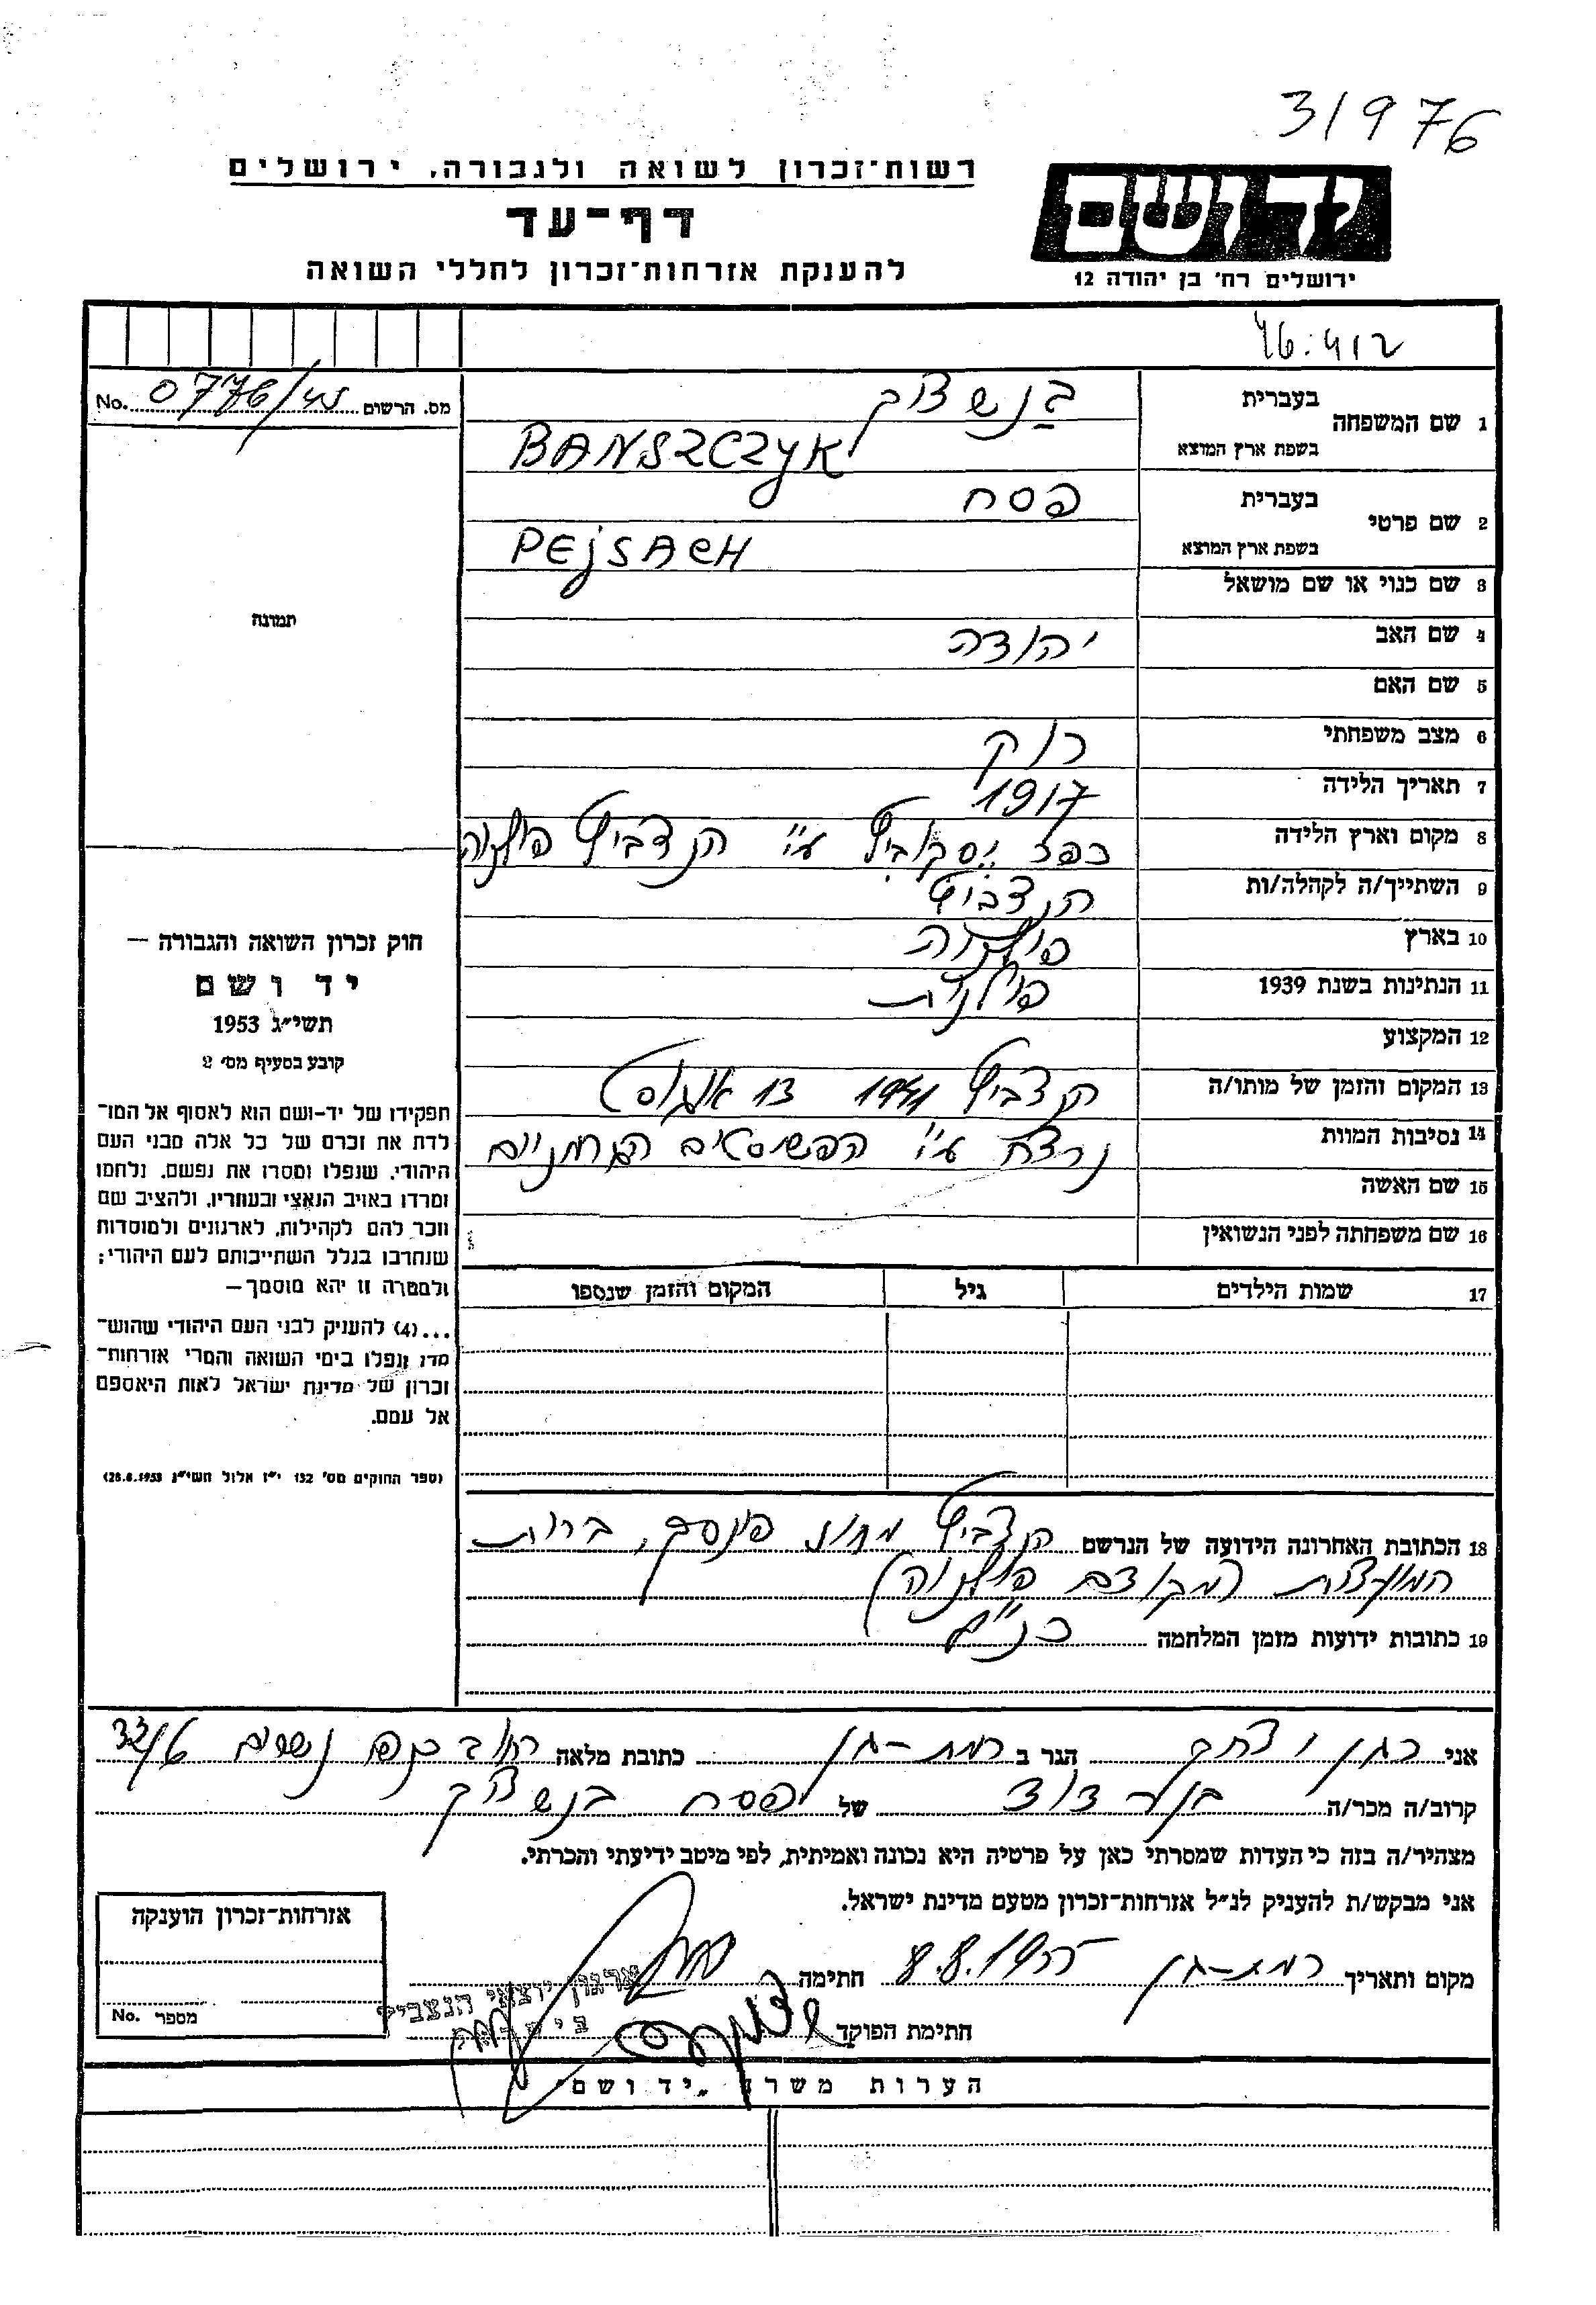 31976
רשות־זכרון לשואה ולגבורה, ירושלים
דף־עד
להענקת אזרחות־זכרון לחללי השואה
יד ושם
ירושלים רח' בן יהודה 12
מס. הרשום 0776/45 No.
1 שם המשפחה
בעברית
בנשצ'יק
בשפת ארץ המוצא
BANSZCZYK
2 שם פרטי
בעברית
פסח
בשפת ארץ המוצא
PEJSACH
3 שם כנוי או שם מושאל
4 שם האב יהודה
5 שם האם
6 מצב משפחתי רוק
7 תאריך הלידה 1917
8 מקום וארץ הלידה כפר ע"י הנצביץ פולניה
9 השתייך/ה לקהלה/ות הנצביץ
10 בארץ פולניה
11 הנתינות בשנת 1939 פולנית
12 המקצוע
13 המקום והזמן של מותו/ה הנצביץ 1941 13 אוגוסט
14 נסיבות המוות נרצח ע"י הפשיסטים הגרמניים
15 שם האשה
16 שם משפחתה לפני הנשואין
17 שמות הילדים גיל המקום והזמן שנספו
18 הכתובת האחרונה הידועה של הנרשם הנצביץ מחוז פינסק, ברית
המועצות (מקודם פולניה)
19 כתובות ידועות מזמן המלחמה כנ"ל
תמונה
חוק זכרון השואה והגבורה —
יד ושם
תשי״ג 1953
קובע בסעיף מס׳ 2
תפקידו של יד-ושם הוא לאסוף אל המו־
לדת את זכרם של כל אלה מבני העם
היהודי, שנפלו ומסרו את נפשם, נלחמו
ומרדו באויב הנאצי ובעוזריו, ולהציב שם
וזכר להם לקהילות, לארגונים ולמוסדות
שנחרבו בגלל השתייכותם לעם היהודי;
ולמטרה זו יהא מוסמך —
...(4) להענק לבני העם היהודי שהוש־
מדו ונפלו בימי השואה והמרי אזרחות־
זכרון של מדינת ישראל לאות היאספם
אל עמם.
(ספר החוקים מס' 132 י״ז אלול תשי״ג 28.8.1953)
אני כהן יצחק הגר ב רמת-גן כתובת מלאה רחוב
קרוב/ה מכר/ה בן דוד של פסח בנשצ'יק
מצהיר/ה בזה כי העדות שמסרתי כאן על פרטיה היא נכונה ואמיתית, לפי מיטב ידיעתי והכרתי.
אני מבקש/ת להעניק לנ״ל אזרחות־זכרון מטעם מדינת ישראל.
מקום ותאריך רמת-גן 8.8.1955 חתימה
חתימת הפוקד
ארגון יוצאי הנצביץ
אזרחות־זכרון הוענקה
מספר No.
הערות משרד „יד ושם״